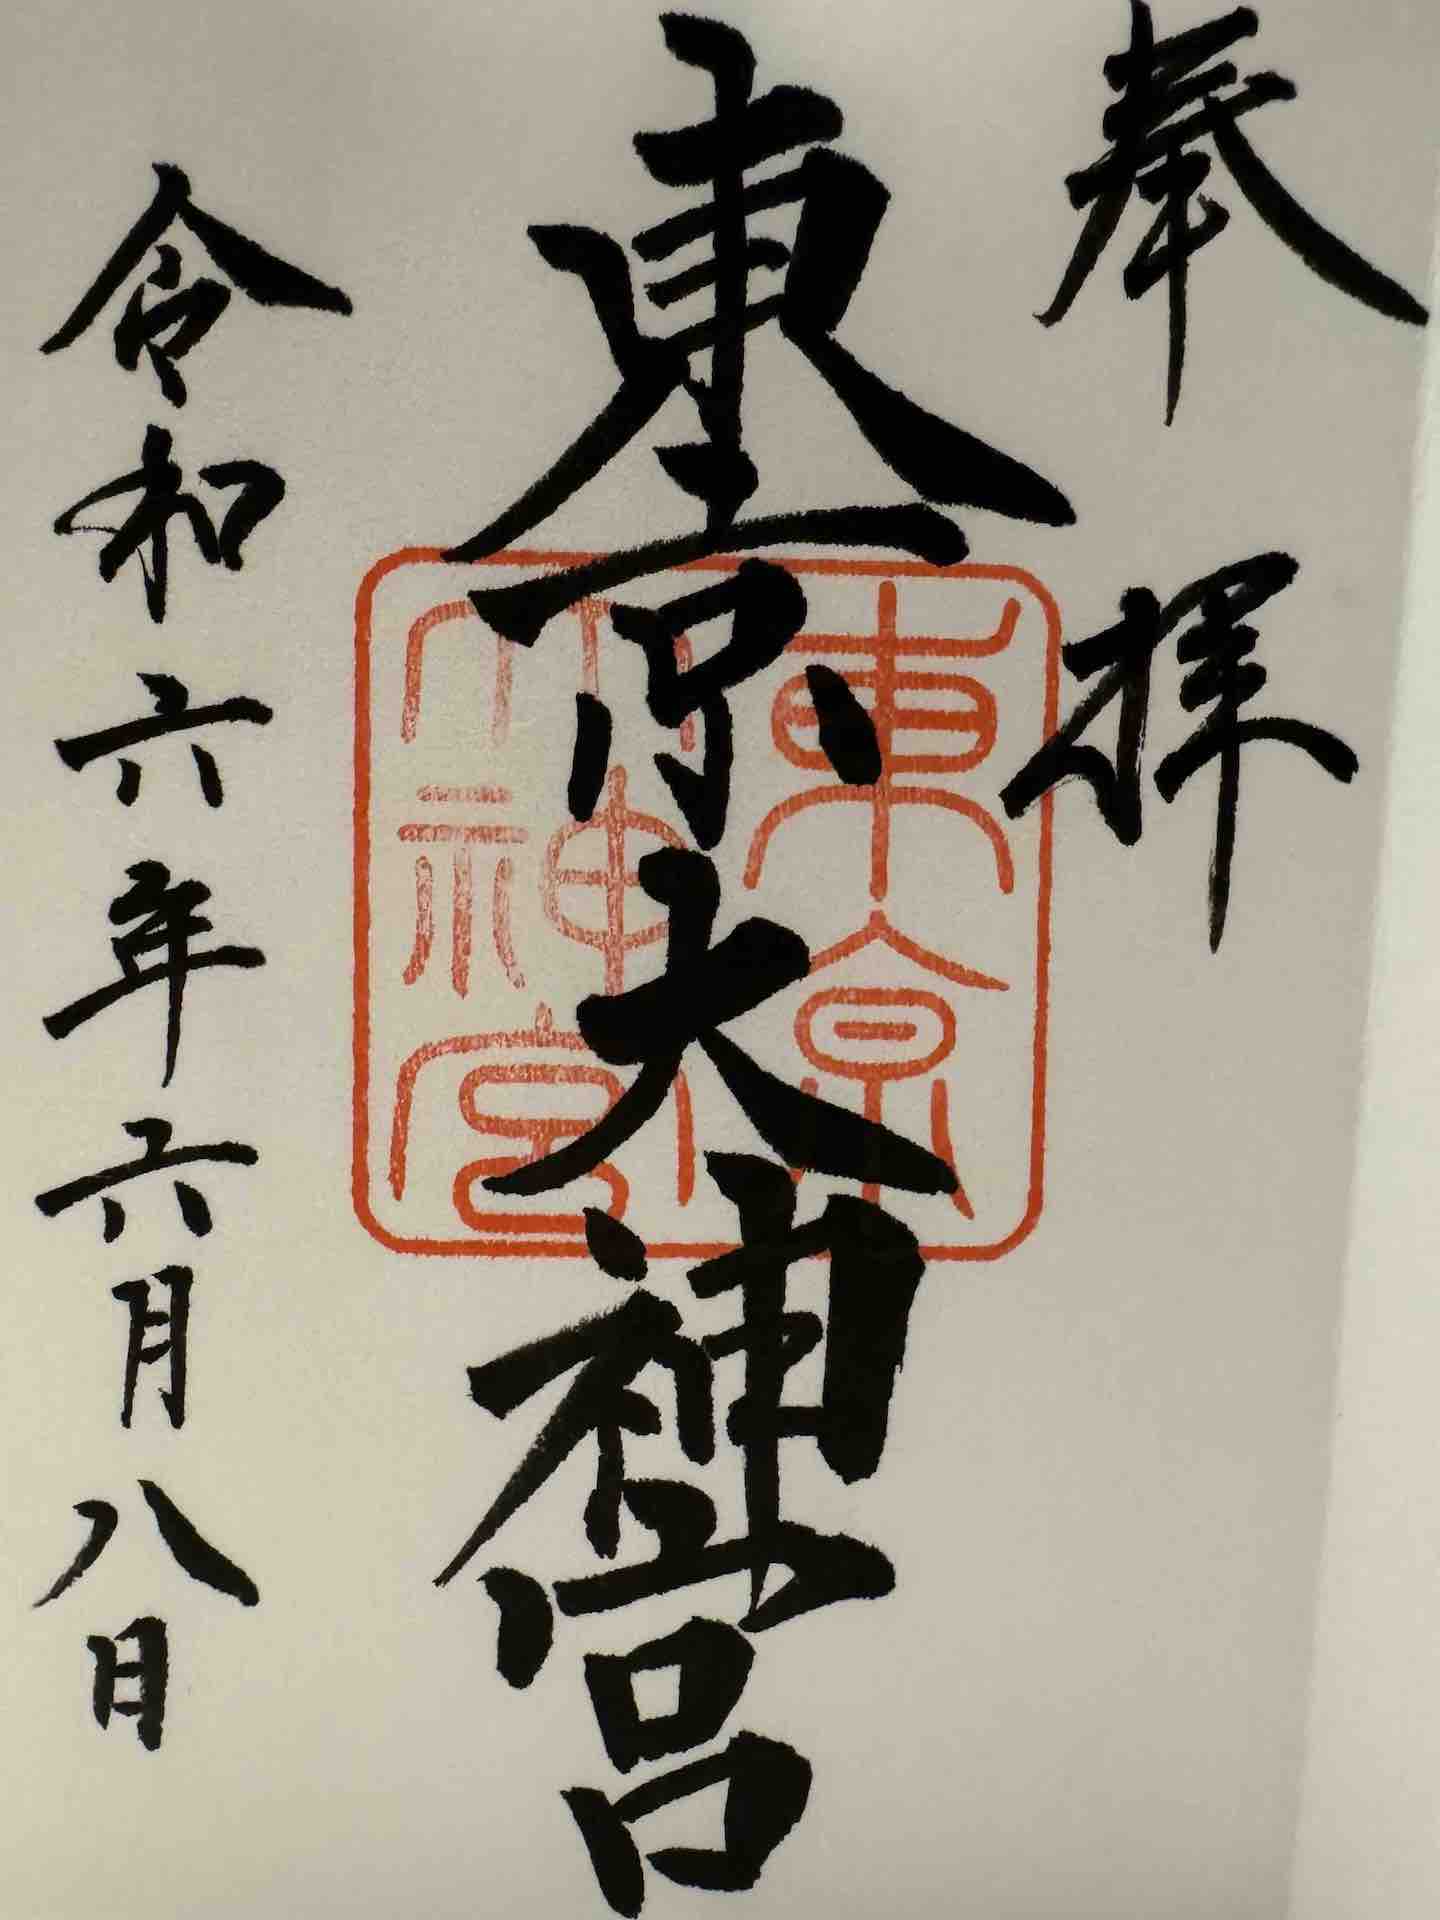 奉拝
東京大神宮
東京大神宮
令和六年六月八日